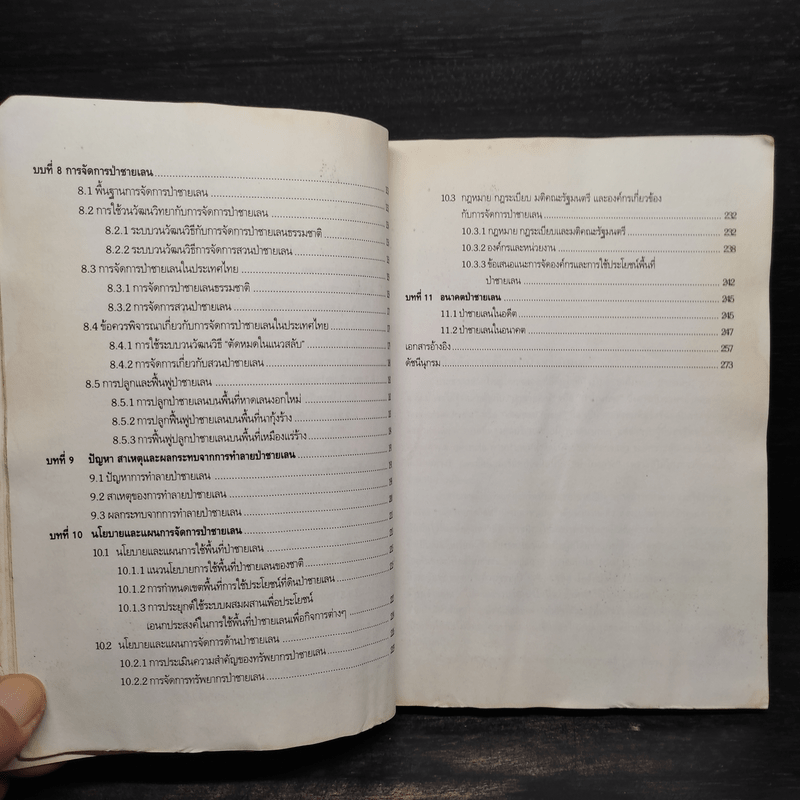 บบที่ 8 การจัดการป่าชายเลน
8.1 พื้นฐานการจัดการป่าชายเลน
8.2 การใช้วนวัฒนวิทยากับการจัดการป่าชายเลน
8.2.1 ระบบวนวัฒนวิธีกับการจัดการป่าชายเลนธรรมชาติ
8.2.2 ระบบวนวัฒนวิธีการจัดการสวนป่าชายเลน
8.3 การจัดการป่าชายเลนในประเทศไทย
8.3.1 การจัดการป่าชายเลนธรรมชาติ
8.3.2 การจัดการสวนป่าชายเลน
8.4 ข้อควรพิจารณาเกี่ยวกับการจัดการป่าชายเลนในประเทศไทย
8.4.1 การใช้ระบบวนวัฒนวิธี "ตัดหมดในแนวสลับ"
8.4.2 การจัดการเกี่ยวกับสวนป่าชายเลน
8.5 การปลูกและฟื้นฟูป่าชายเลน
8.5.1 การปลูกป่าชายเลนบนพื้นที่หาดเลนงอกใหม่
8.5.2 การปลูกฟื้นฟูป่าชายเลนบนพื้นที่นากุ้งร้าง
8.5.3 การฟื้นฟูปลูกป่าชายเลนบนพื้นที่เหมืองแร่ร้าง
บทที่ 9 ปัญหา สาเหตุและผลกระทบจากการทำลายป่าชายเลน
9.1 ปัญหาการทำลายป่าชายเลน
9.2 สาเหตุของการทำลายป่าชายเลน
9.3 ผลกระทบจากการทำลายป่าชายเลน
บทที่ 10 นโยบายและแผนการจัดการป่าชายเลน
10.1 นโยบายและแผนการใช้พื้นที่ป่าชายเลน
10.1.1 แนวนโยบายการใช้พื้นที่ป่าชายเลนของชาติ
10.1.2 การกำหนดเขตพื้นที่การใช้ประโยชน์ที่ดินป่าชายเลน
10.1.3 การประยุกต์ใช้ระบบผสมผสานเพื่อประโยชน์
เอนกประสงค์ในการใช้พื้นที่ป่าชายเลนเพื่อกิจการต่างๆ
10.2 นโยบายและแผนการจัดการด้านป่าชายเลน
10.2.1 การประเมินความสำคัญของทรัพยากรป่าชายเลน
10.2.2 การจัดการทรัพยากรป่าชายเลน
10.3 กฎหมาย กฎระเบียบ มติคณะรัฐมนตรี และองค์กรเกี่ยวข้อง
กับการจัดการป่าชายเลน 232
10.3.1 กฎหมาย กฎระเบียบและมติคณะรัฐมนตรี 232
10.3.2 องค์กรและหน่วยงาน 238
10.3.3 ข้อเสนอแนะการจัดองค์กรและการใช้ประโยชน์พื้นที่
ป่าชายเลน 242
บทที่ 11 อนาคตป่าชายเลน 245
11.1 ป่าชายเลนในอดีต 245
11.2 ป่าชายเลนในอนาคต 247
เอกสารอ้างอิง 257
ดัชนีนุกรม 273